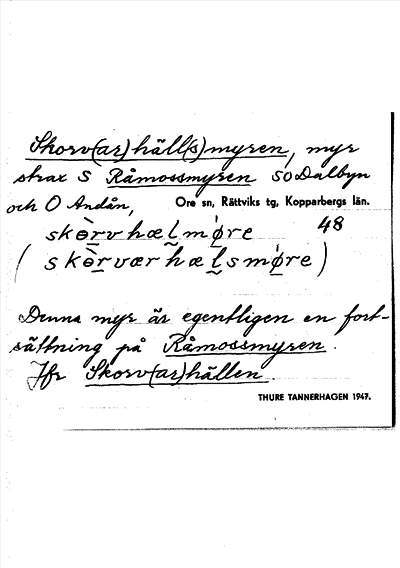 Skorv(ar)häll(s)myren, myr
strax S Råmossmyren SO Dalbyn
och O Andån, Ore sn, Rättviks tg, Kopparbergs län.
skè̱rvhæḷmǿ̱re 48
(skè̱rværhæḷsmǿ̱re)
Denna myr är egentligen en fort-
sättning på Råmossmyren.
Jfr Skorv(ar)hällen.
THURE TANNERHAGEN 1947.